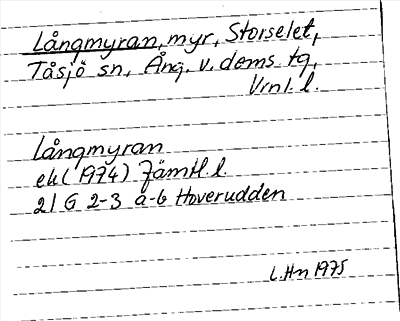 Långmyran, myr, Storselet,
Tåsjö sn, Ång. v. dems tg,
Vrnl. l.
Långmyran
ek (1974) Jämtl. l.
21 G 2-3 a-b Hoverudden
L. Hn 1975